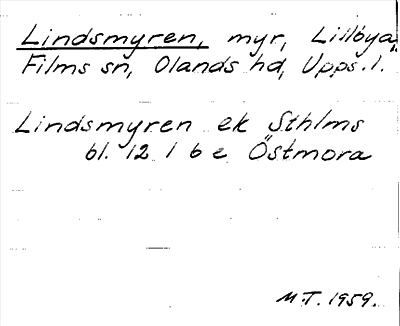 Lindsmyren, myr, Lillöya,
Films sn, Olands hd, Upps. l.
Lindsmyren ek Sthlms
bl. 12 1 6 e Östmora
M.T. 1959.